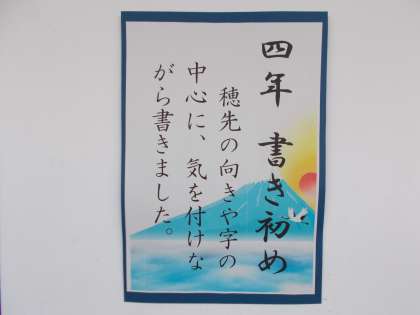 四年 書き初め
穂先の向きや字の
中心に、気を付けな
がら書きました。